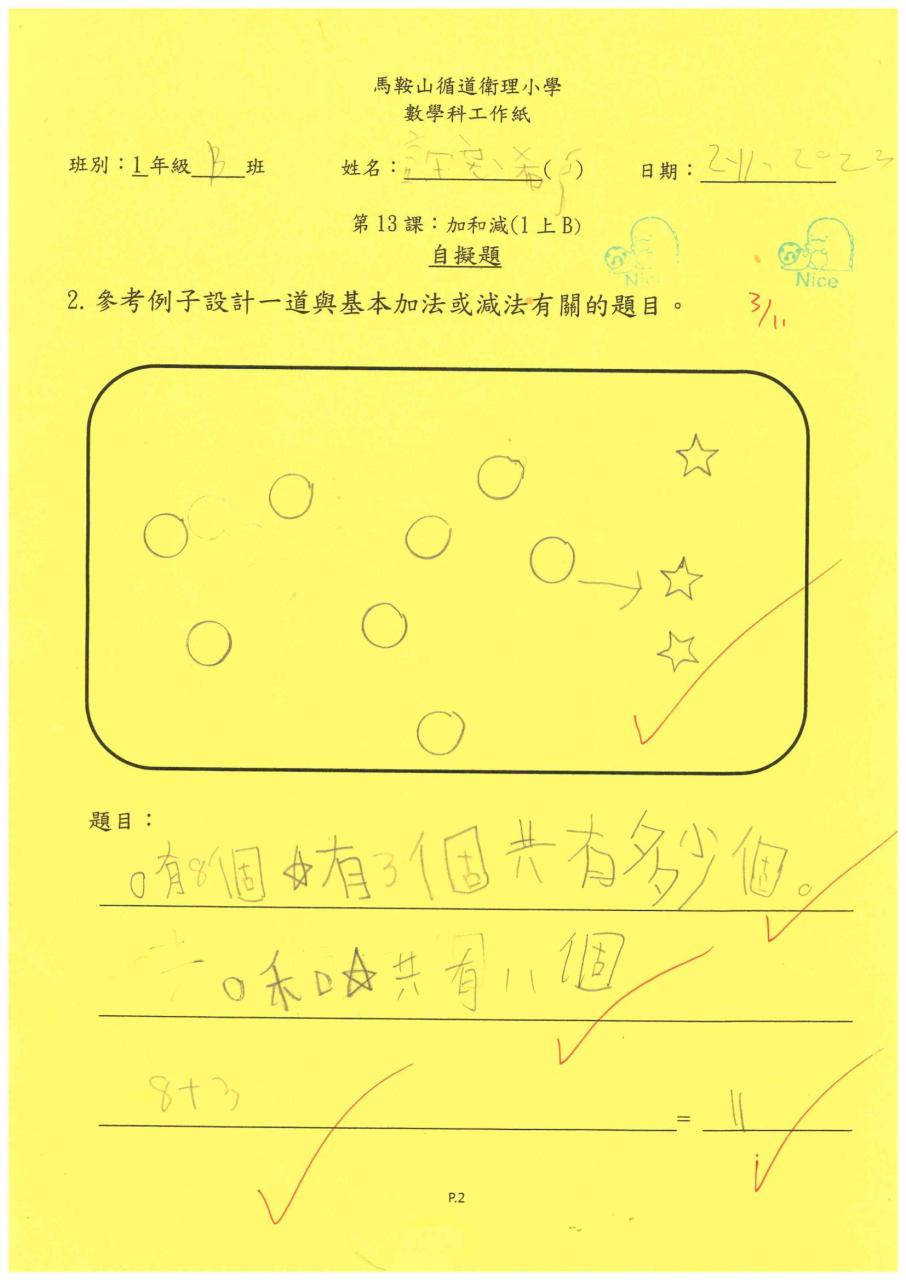 馬鞍山循道衛理小學
數學科工作紙
班別：1年級 B 班 姓名： ( ) 日期：2-11-2023
第13課：加和減(1上B)
自擬題
Nice Nice
2. 參考例子設計一道與基本加法或減法有關的題目。 3/11
題目：
○有8個☆有3個共有多少個。
○和☆共有11個
8+3 = 11
P.2